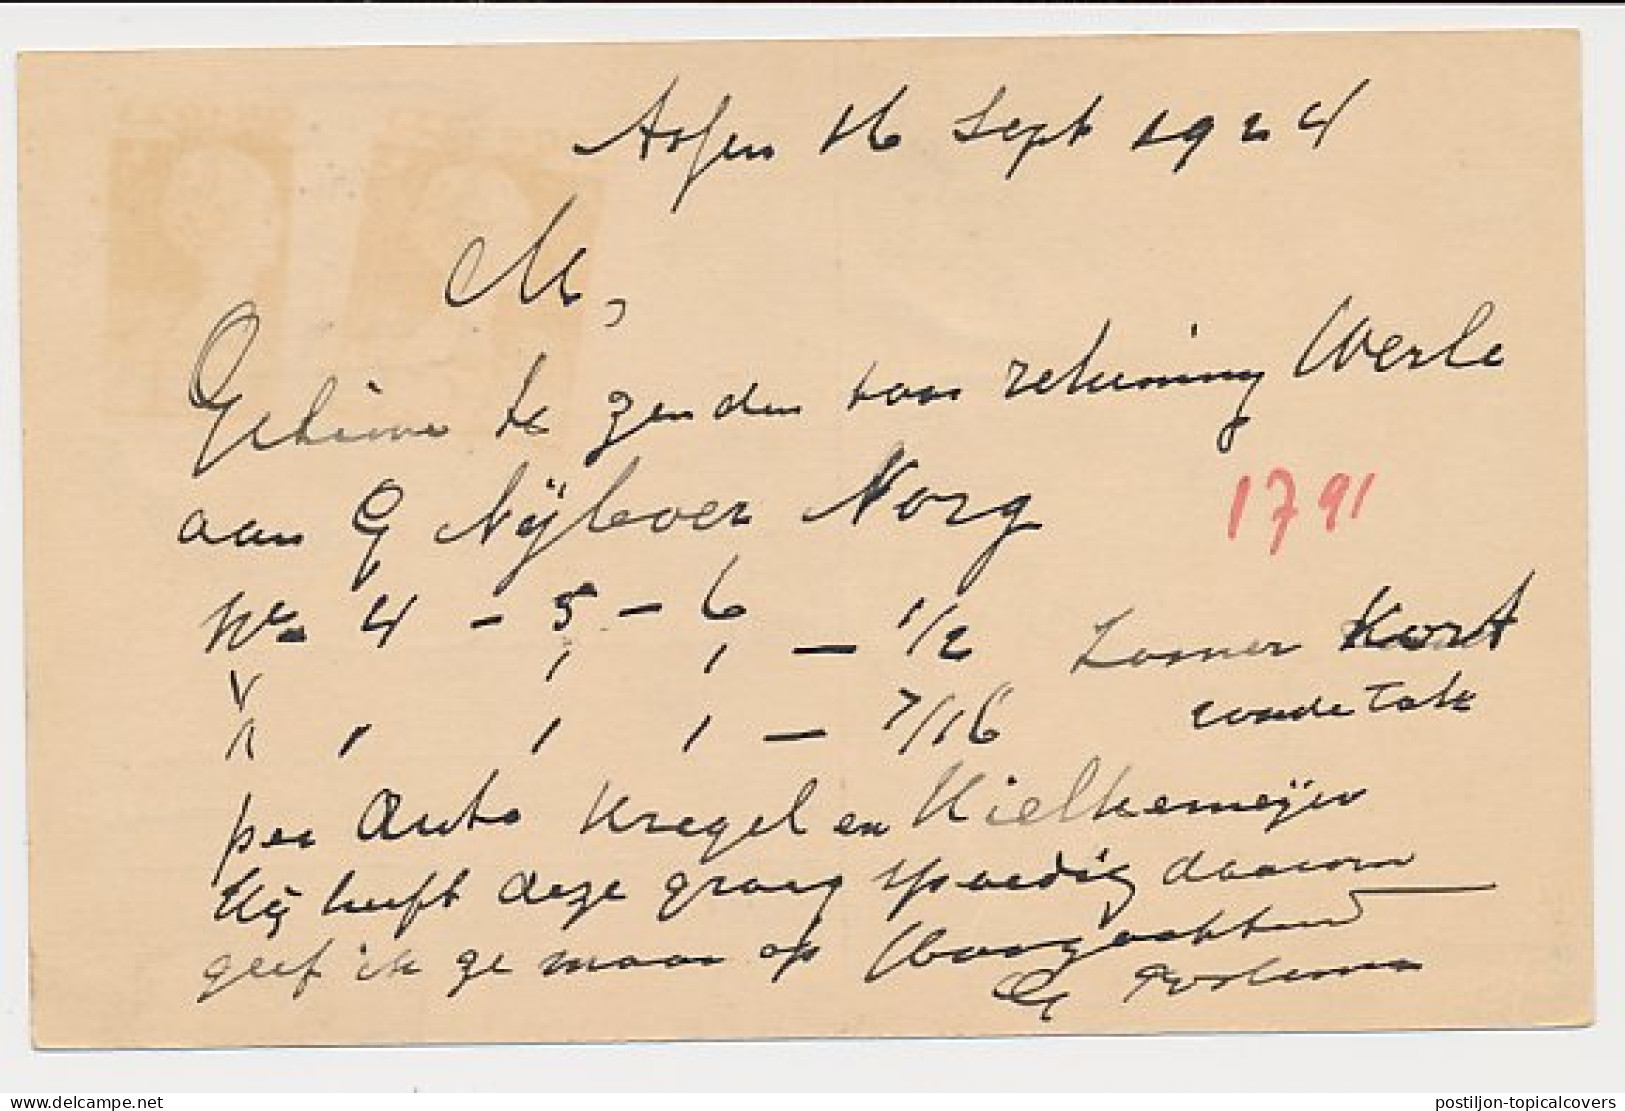 Assen 16 Sept 1924
M,
Gelieve te zenden voor rekening Werle
aan G Nijboer Norg
No 4 - 5 - 6
— 1/2 Zomer Kort
— 7/16 ronde
per Auto Kregel en Kielkemeijer
Hij heeft deze graag spoedig daarom
geef ik ze maar op Hoogachtend
1791
delcampe.net
postiljon-topicalcovers